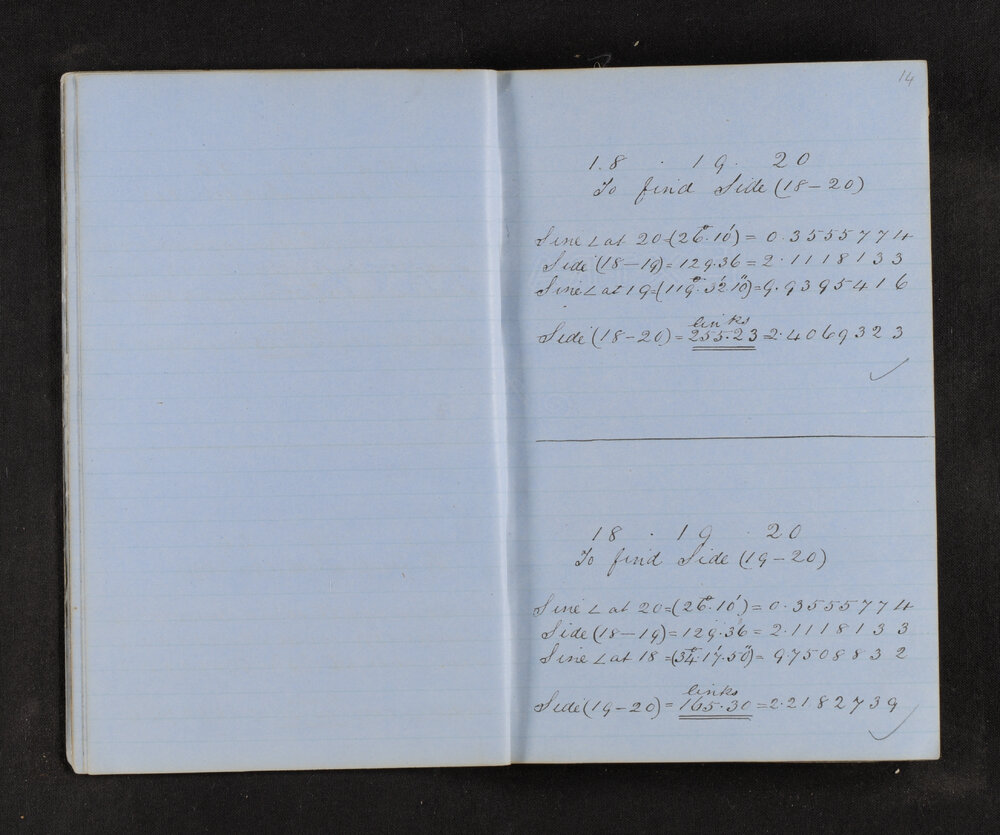 14
18 . 19 . 20
To find Side (18–20)
Sine ∠ at 20=(26°.10') = 0.3555774
Side (18–19) = 129.36 = 2.1118133
Sine ∠ at 19=(119°.32'.10")=9.9395416
links
Side (18–20) = 255.23 = 2.4069323
18 . 19 . 20
To find Side (19–20)
Sine ∠ at 20=(26°.10') = 0.3555774
Side (18–19) = 129.36 = 2.1118133
Sine ∠ at 18 =(34°.17'.50")= 9.7508832
links
Side (19–20) = 165.30 = 2.2182739